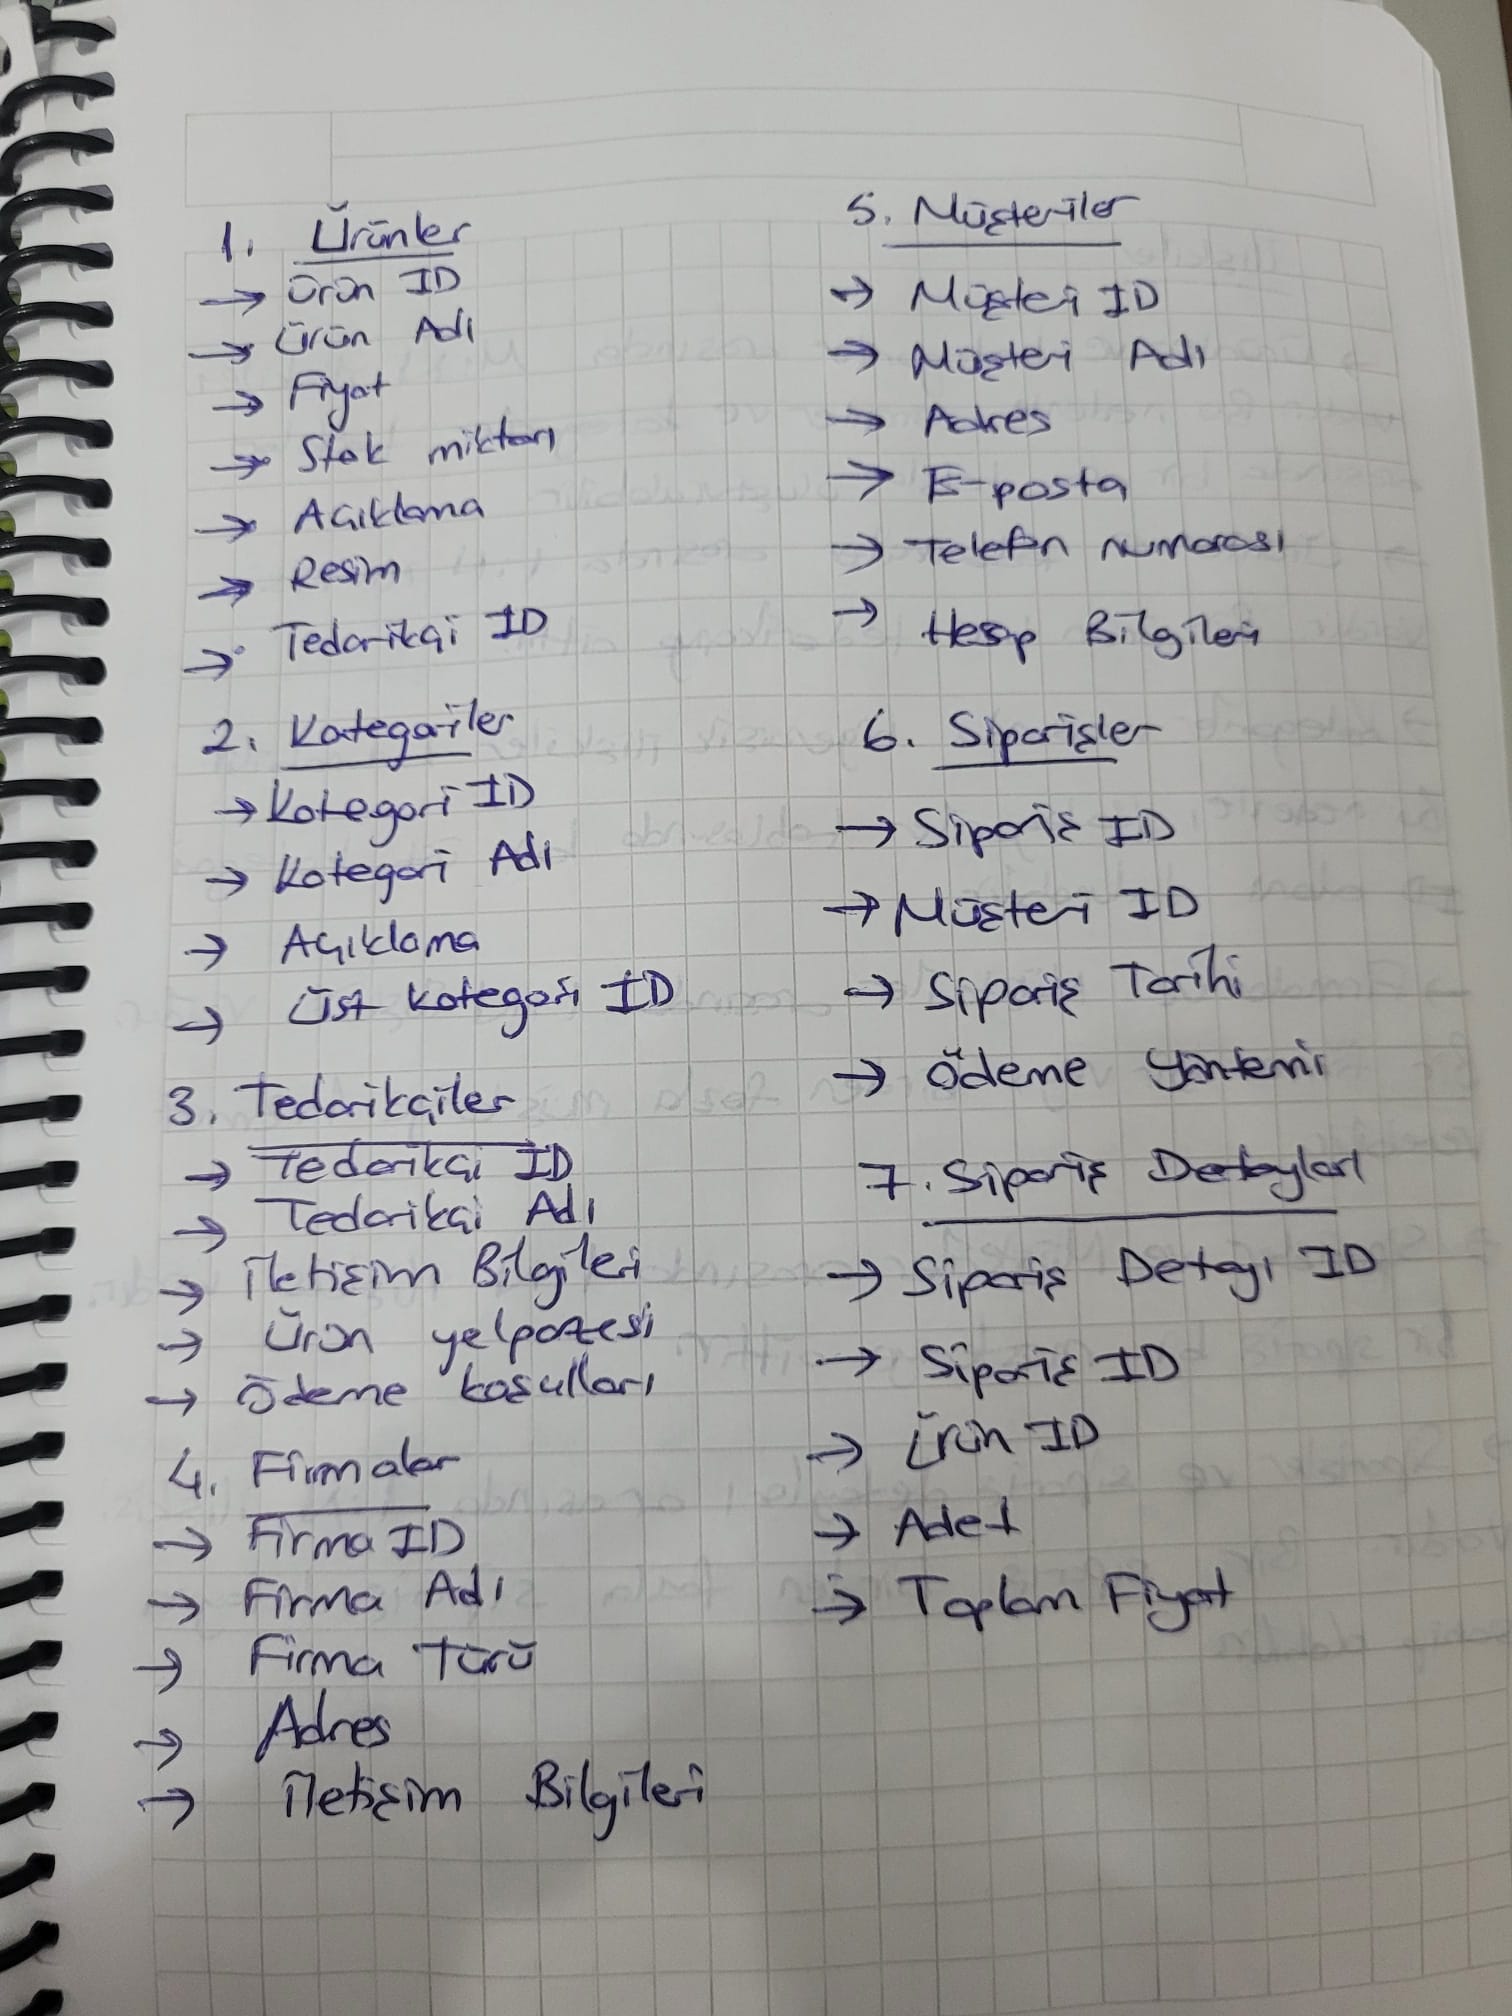 1. Ürünler
→ Ürün ID
→ Ürün Adı
→ Fiyat
→ Stok miktarı
→ Açıklama
→ Resim
→ Tedarikçi ID
2. Kategoriler
→ Kategori ID
→ Kategori Adı
→ Açıklama
→ Üst kategori ID
3. Tedarikçiler
→ Tedarikçi ID
→ Tedarikçi Adı
→ İletişim Bilgileri
→ Ürün yelpazesi
→ Ödeme koşulları
4. Firmalar
→ Firma ID
→ Firma Adı
→ Firma Türü
→ Adres
→ İletişim Bilgileri
5. Müşteriler
→ Müşteri ID
→ Müşteri Adı
→ Adres
→ E-posta
→ Telefon numarası
→ Hesap Bilgileri
6. Siparişler
→ Sipariş ID
→ Müşteri ID
→ Sipariş Tarihi
→ Ödeme Yöntemi
7. Sipariş Detayları
→ Sipariş Detayı ID
→ Sipariş ID
→ Ürün ID
→ Adet
→ Toplam Fiyat